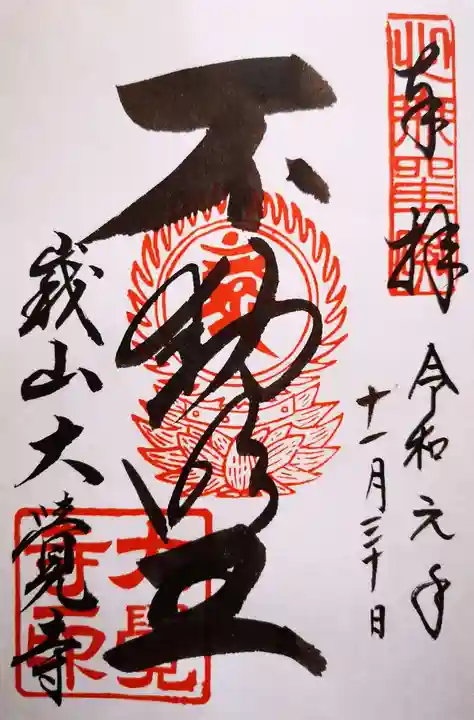 奉拝
令和元年
十一月三十日
不動明王
峩山大覺寺
大覺寺印